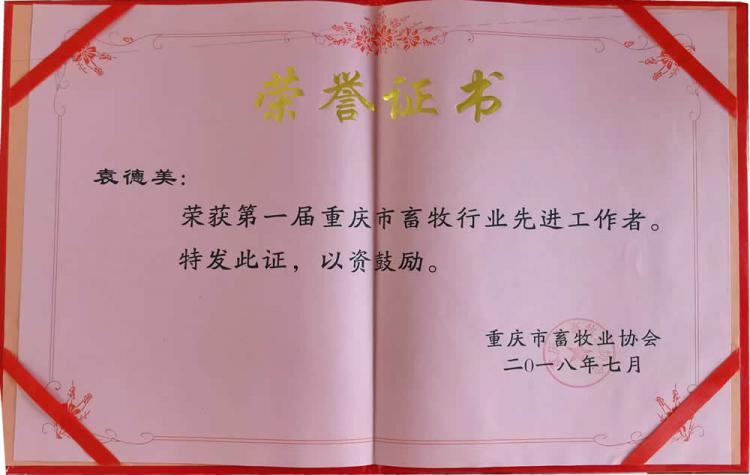 荣誉证书
袁德美：
荣获第一届重庆市畜牧行业先进工作者。
特发此证，以资鼓励。
重庆市畜牧业协会
二0一八年七月